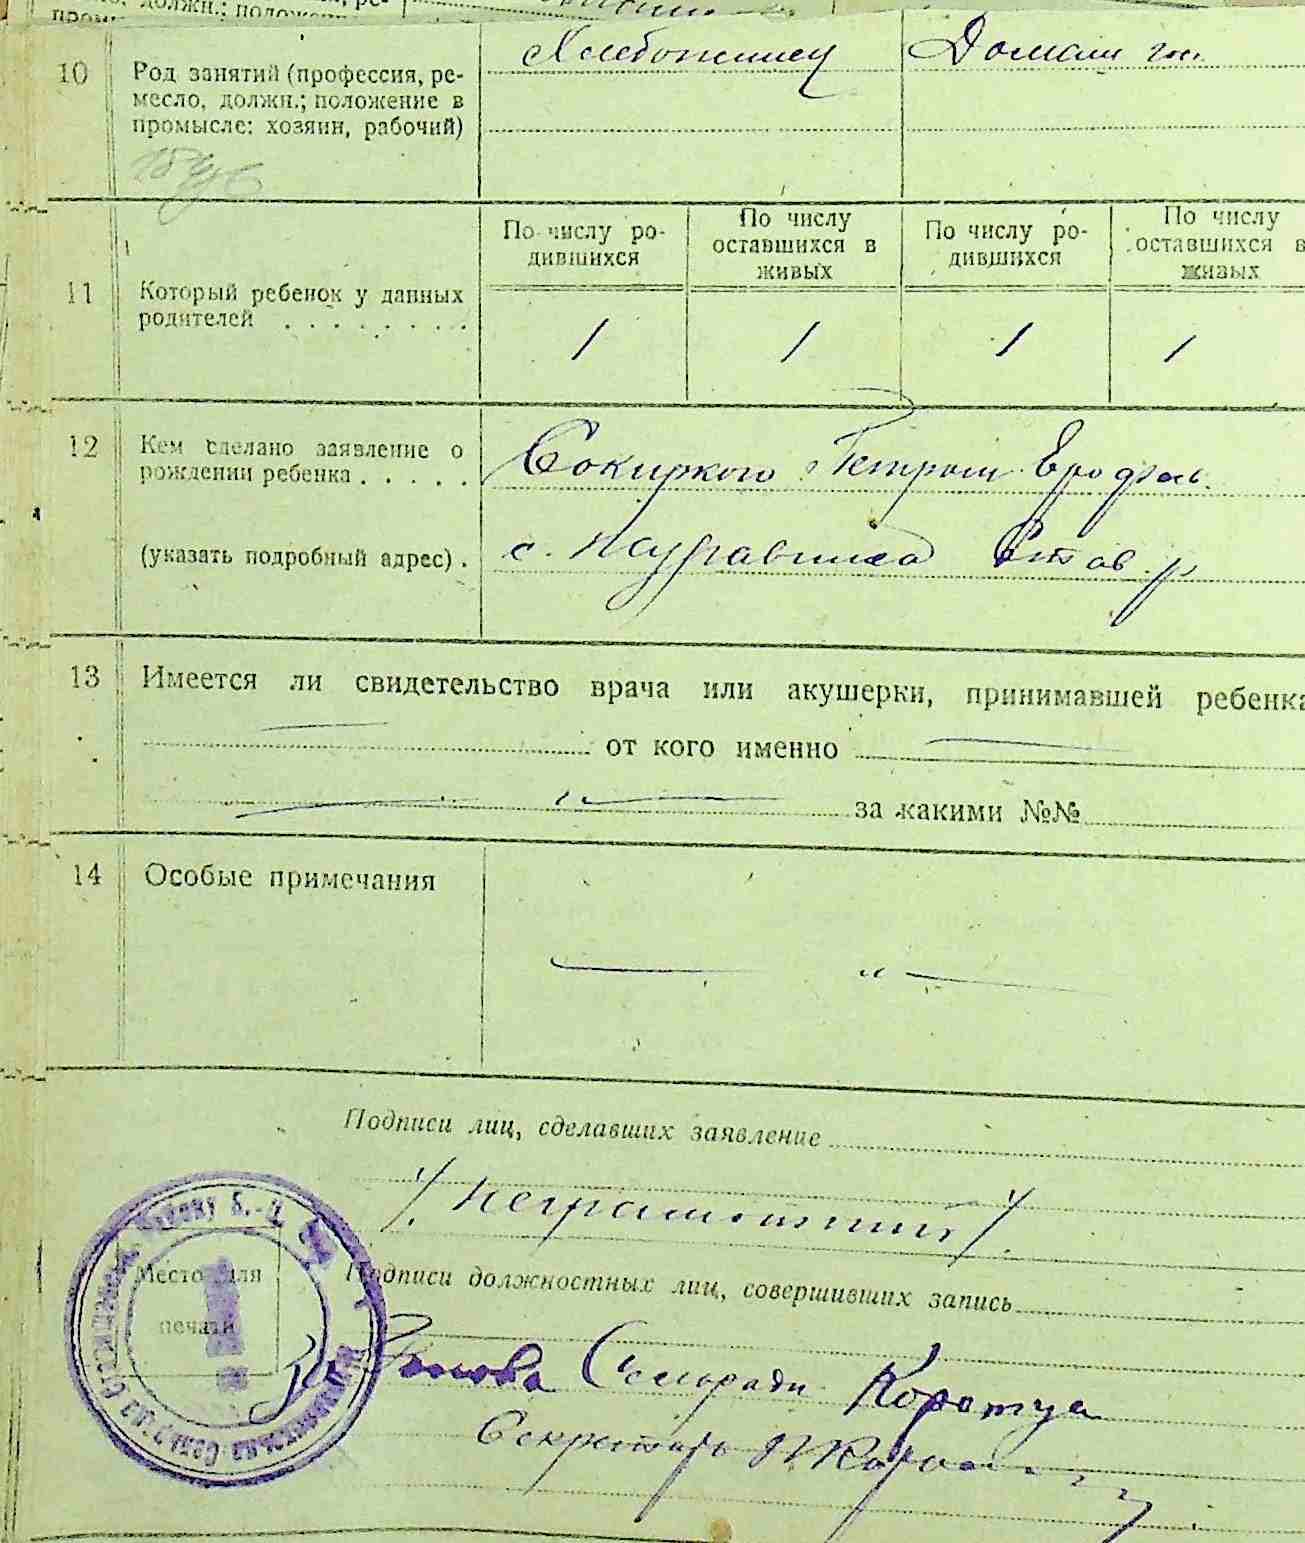 10 Род занятий (профессия, ре-
месло, должн.; положение в
промысле: хозяин, рабочий)
Хлебопашец Домашн
11 Который ребенок у данных
родителей . . . . . . . .
По числу ро-
дившихся
По числу
оставшихся в
живых
По числу ро-
дившихся
По числу
оставшихся в
живых
1 1 1 1
12 Кем сделано заявление о
рождении ребенка . . . . .
Сокирко Петром Ерофеев.
(указать подробный адрес) .
с. Журавлиха Став. р
13 Имеется ли свидетельство врача или акушерки, принимавшей ребенка
от кого именно
за какими №№
14 Особые примечания
— „ —
Подписи лиц, сделавших заявление
/. неграмотний /.
Подписи должностных лиц, совершивших запись
Место для
печати
За Голова Сельради
Секретарь